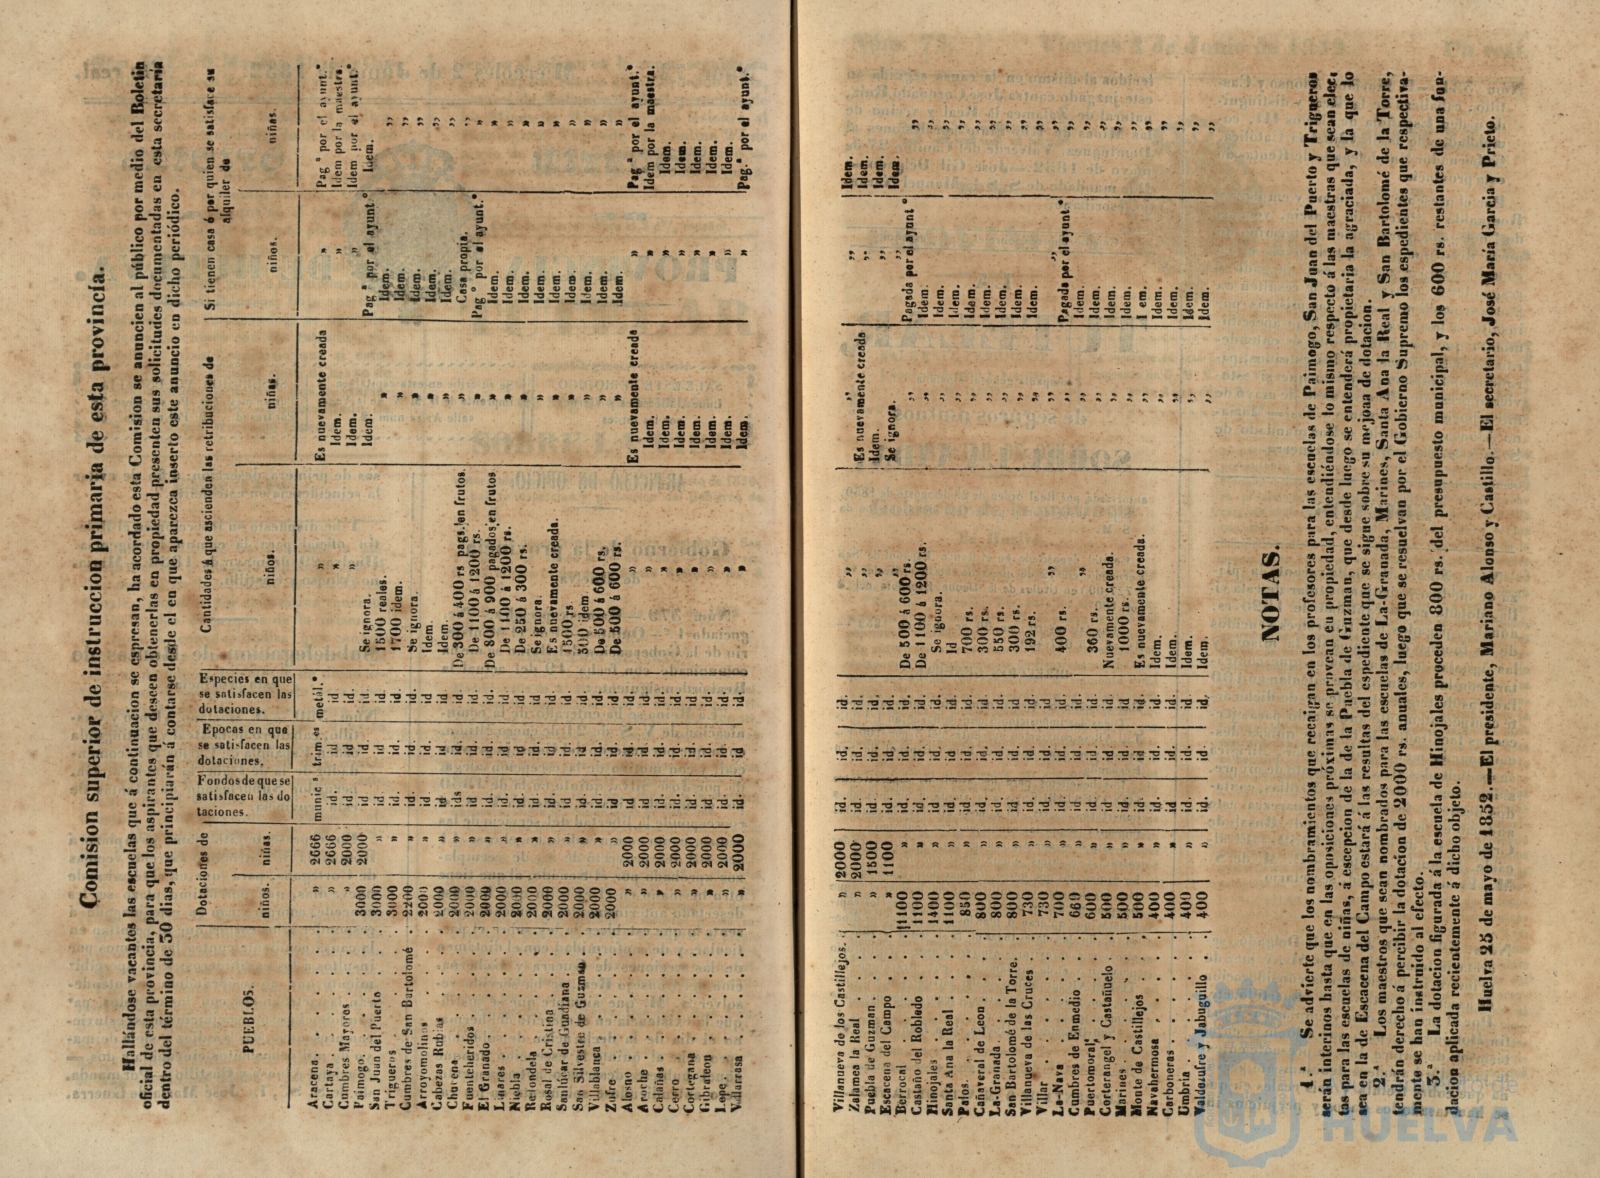 Comision superior de instruccion primaria de esta provincia.
Hallándose vacantes las escuelas que á continuacion se espresan, ha acordado esta Comision se anuncien al público por medio del Boletin
oficial de esta provincia, para que los aspirantes que deseen obtenerlas en propiedad presenten sus solicitudes documentadas en esta secretaria
dentro del término de 30 dias, que principiarán á contarse desde el en que aparezca inserto este anuncio en dicho periódico.
PUEBLOS.
Dotaciones de
niños. niñas.
Fondos de que se
satisfacen las do
taciones.
Epocas en que
se satisfacen las
dotaciones.
Especies en que
se satisfacen las
dotaciones.
Cantidades á que ascienden las retribuciones de
niños. niñas.
Si tienen casa ó por quien se satisface su
alquiler de
niños. niñas.
Aracena. » 2666 munic.s trim.es metál.º » Es nuevamente creada » Pag.ª por el ayunt.º
Cartaya » 2666 id. id. id. » Idem. » Idem por la maestra.
Cumbres Mayores » 2000 id. id. id. » Idem. » Idem por el ayunt.º
Paimogo. 3000 2000 id. id. id. Se ignora. Idem. Pag.ª por el ayunt.º Idem.
San Juan del Puerto 3000 » id. id. id. 1500 reales. » Idem. »
Trigueros 3000 » id. id. id. 1700 idem. » Idem. »
Cumbres de San Bartolomé 2200 » id. id. id. Se ignora. » Idem. »
Arroyomolinos 2000 » id. id. id. Idem. » Idem. »
Cabezas Rubias 2000 » id. id. id. Idem. » Idem. »
Chucena 2000 » ids id. id. De 300 á 400 rs pags. en frutos. » Casa propia. »
Fuenteheridos 2000 » id. id. id. De 1100 á 1200 rs. » Pag.ª por el ayunt.º »
El Granado 2000 » id. id. id. De 800 á 900 pagados en frutos » Idem. »
Linares 2000 » id. id. id. De 1100 á 1200 rs. » Idem. »
Niebla 2000 » id. id. id. De 250 á 300 rs. » Idem. »
Redondela 2000 » id. id. id. Se ignora. » Idem. »
Rosal de Cristina 2000 » id. id. id. Es nuevamente creada. » Idem. »
Sanlúcar de Guadiana 2000 » id. id. id. 1500 rs. » Idem. »
San Silvestre de Guzman 2000 » id. id. id. 500 idem » Idem. »
Villablanca 2000 » id. id. id. De 500 á 600 rs. » Idem. »
Zufre 2000 » id. id. id. De 500 á 600 rs. » Idem. »
Alosno » 2000 id. id. id. » Es nuevamente creada » Pag.ª por el ayunt.º
Aroche » 2000 id. id. id. » Idem. » Idem por la maestra.
Calañas » 2000 id. id. id. » Idem. » Idem.
Cerro » 2000 id. id. id. » Idem. » Idem.
Cortegana » 2000 id. id. id. » Idem. » Idem.
Gibraleon » 2000 id. id. id. » Idem. » Idem.
Lepe » 2000 id. id. id. » Idem. » Idem.
Villarrasa » 2000 id. id. id. » Idem. » Pag.ª por el ayunt.º
Villanueva de los Castillejos. » 2000 id. id. id. » » » Idem.
Zalamea la Real » 2000 id. id. id. » Es nuevamente creada » Idem.
Puebla de Guzman » 1500 id. id. id. » Idem. » Idem.
Escacena del Campo » 1100 id. id. id. » Se ignora. » Idem.
Berrocal 1100 » id. id. id. De 500 á 600 rs. » Pagada por el ayunt.º »
Castaño del Robledo 1100 » id. id. id. De 1100 á 1200 rs. » Idem. »
Hinojales 1400 » id. id. id. Se ignora. » Idem. »
Santa Ana la Real 1100 » id. id. id. Id » Idem. »
Palos 850 » id. id. id. 700 rs. » Idem. »
Cañaveral de Leon 800 » id. id. id. 300 rs. » Idem. »
La-Granada 800 » id. id. id. 550 rs. » Idem. »
San Bartolomé de la Torre. 800 » id. id. id. 300 rs. » Idem. »
Villanueva de las Cruces 730 » id. id. id. 192 rs. » Idem. »
Villar 730 » id. id. id. » » » »
La-Nava 700 » id. id. id. 400 rs. » Pagada por el ayunt.º »
Cumbres de Enmedio 660 » id. id. id. » » Idem. »
Puertomoral 600 » id. id. id. 360 rs. » Idem. »
Corterangel y Castañuelo 500 » id. id. id. Nuevamente creada. » Idem. »
Marines 500 » id. id. id. 1000 rs. » Idem. »
Monte de Castillejos 500 » id. id. id. Es nuevamente creada. » Idem. »
Navahermosa 400 » id. id. id. Idem. » Idem. »
Carboneras 400 » id. id. id. Idem. » Idem. »
Umbria 400 » id. id. id. Idem. » Idem. »
Valdezufre y Jabuguillo 400 » id. id. id. Idem. » Idem. »
NOTAS.
1.ª Se advierte que los nombramientos que recaigan en los profesores para las escuelas de Paimogo, San Juan del Puerto y Trigueros
serán interinos hasta que en las oposiciones próximas se provean en propiedad, entendiéndose lo mismo respecto á las maestras que sean elec-
tas para las escuelas de niñas, á escepcion de la de la Puebla de Guzman, que desde luego se entenderá propietaria la agraciada, y la que lo
sea en la de Escacena del Campo estará á las resultas del espediente que se sigue sobre su mejora de dotacion.
2.ª Los maestros que sean nombrados para las escuelas de La-Granada, Marines, Santa Ana la Real y San Bartolomé de la Torre,
tendrán derecho á percibir la dotacion de 2000 rs. anuales, luego que se resuelvan por el Gobierno Supremo los espedientes que respectiva-
mente se han instruido al efecto.
3.ª La dotacion figurada á la escuela de Hinojales proceden 800 rs. del presupuesto municipal, y los 600 rs. restantes de una fun-
dacion aplicada recientemente á dicho objeto.
Huelva 25 de mayo de 1852.—El presidente, Mariano Alonso y Castillo.—El secretario, José María Garcia y Prieto.
HUELVA